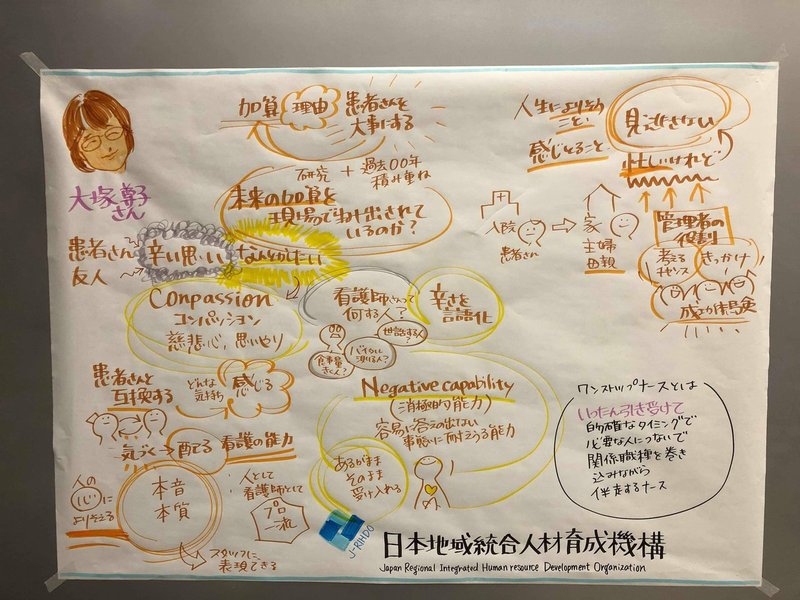 大塚尊子
さん
加算
理由
患者さんを
大事にする
研究 + 過去00年
積み重ね
未来の加算を
現場で
されて
いるのか？
患者さん
友人
辛い思い
なんとかしたい
Conpassion
コンパッション
慈悲心、思いやり
看護師さんって
何する人？
辛さを
言語化
世話する人？
食事量
きく人？
バイタル
測る人？
患者さんと
互換する
どんな
気持ち
感じる
気づく→育てる
看護の能力
人の
心に
より添える
本音
本質
人として
看護師として
プロ
一流
スタッフに、
表現できる
Negative capability
(消極的能力)
容易に答えの出ない
事態に耐えうる能力
あるがまま
そのまま
受け入れる
人生により添う
こと、
感じとること
見逃さない
忙しいけれど
入院
患者さん
家
主婦
母親
管理者の
役割
考える
チャンス
きっかけ
成功体験
ワンストップナースとは
いったん引き受けて
的確なタイミングで
必要な人につないで
関係職種を巻き
込みながら
伴走するナース
J-RIHDO
日本地域統合人材育成機構
Japan Regional Integrated Human resource Development Organization